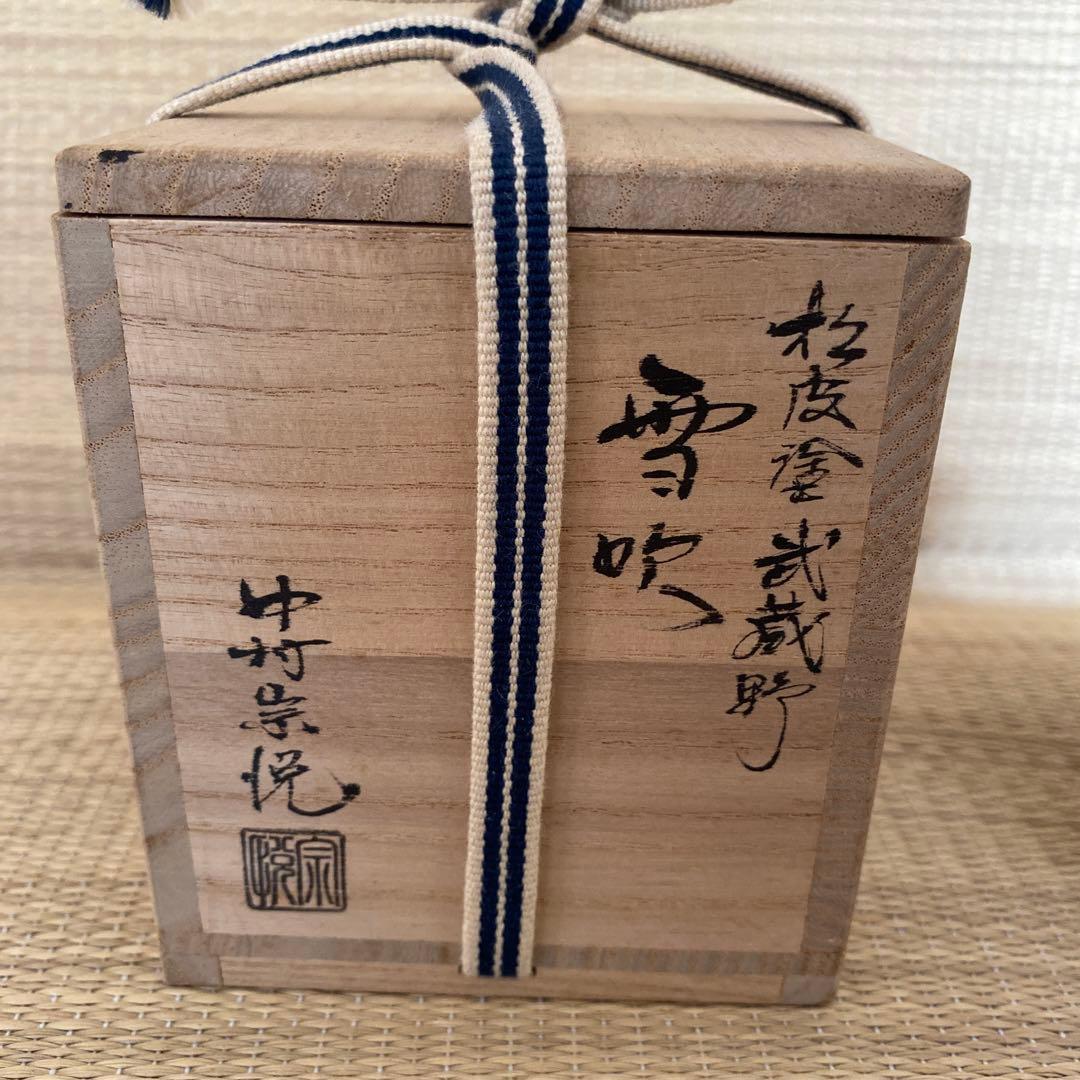 松皮塗 武蔵野
雪吹
中村宗悦
宗悦